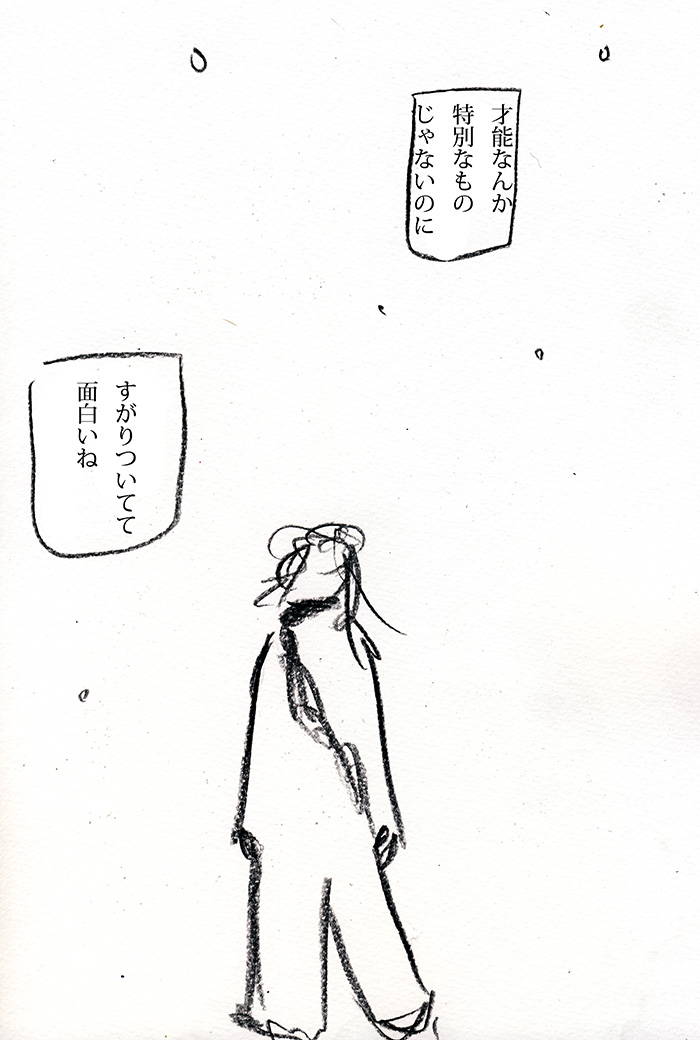 才能なんか
特別なもの
じゃないのに
すがりついてて
面白いね